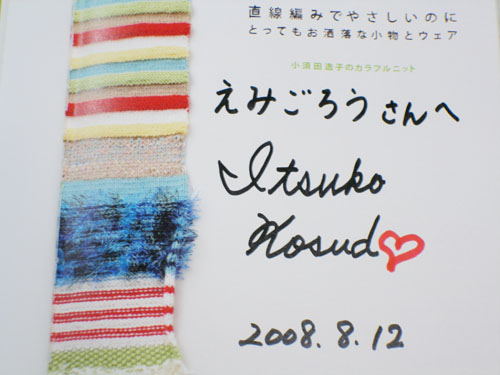 直線編みでやさしいのに
とってもお洒落な小物とウェア
小須田逸子のカラフルニット
えみごろうさんへ
Itsuko
Kosud
2008.8.12